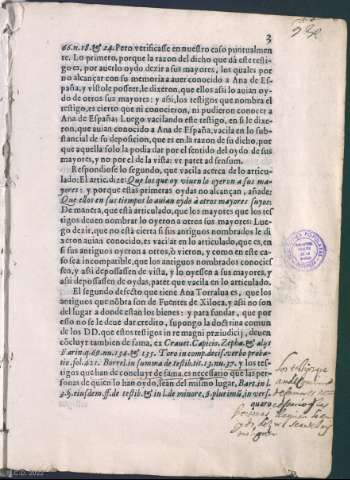 3
66.n.18.& 24. Pero verificasse en nuestro caso puntualmen-
te. Lo primero, porque la razon del dicho que dà este testi-
go es, por auerlo oydo dezir a sus mayores, los quales por
no alcançar con su memoria a auer conocido a Ana de Es-
paña, y vistole posseer, le dixeron, que ellos assi lo auian oy-
do de otros sus mayores: y assi, los testigos que nombra el
testigo, es cierto que ni conocieron, ni pudieron conocer a
Ana de España: Luego vacilando este testigo, en si le dixe-
ron, que auian conocido a Ana de España, vacila en lo subs-
tancial de su deposicion, que es en la razon de su dicho, por
que aquella solo la podia dar por el sentido del oydo de sus
mayores, y no por el de la vista: vt patet ad sensum.
Respondiose lo segundo, que vacila acerca de lo articu-
lado: El artic. dize: Que los que oy viuen lo oyeron a sus ma-
yores: y porque estas primeras oydas no alcançan, añade:
Que ellos en sus tiempos lo auian oydo à otros mayores suyos:
De manera, que està articulado, que los mayores que los tes-
tigos deuen nombrar lo oyeron a otros sus mayores: Lue-
go dezir, que no està cierta si sus antiguos nombrados le di-
xeron auian conocido, es vacilar en lo articulado, que es, en
si sus antiguos oyeron a otros, ò vieron, y como en este ca-
so sea incompatible, que los antiguos nombrados conocies-
sen, y assi depossassen de vista, y lo oyessen a sus mayores, y
assi depossassen de oydas, patet que vacila en lo articulado.
El segundo defecto que tiene Ana Torralua es, que los
antiguos que nõbra son de Fuentes de Xiloca, y assi no son
del lugar a donde estan los bienes: y para fundar, que por
esso no se le deue dar credito, supongo la doctrina comun
de los DD. que estos testigos in re magni præiudicij, deuen
cõcluyr tambien de fama, ex Crauet. Capicio. Zepha. & alys
Farin.q.69.nu.134.& 135. Toro in comp.decis.verbo proba-
tio.fol.621. Borrel.in summa de testib.tit.13.nu.37. y los tes-
tigos que han de concluyr de fama, es necessario que las per-
sonas de quien lo han oydo, sean del mismo lugar, Bart.in l.
3.§. eiusdem.ff. de testib. & in l. de minore, §. plurimũ, in vers.
quæro